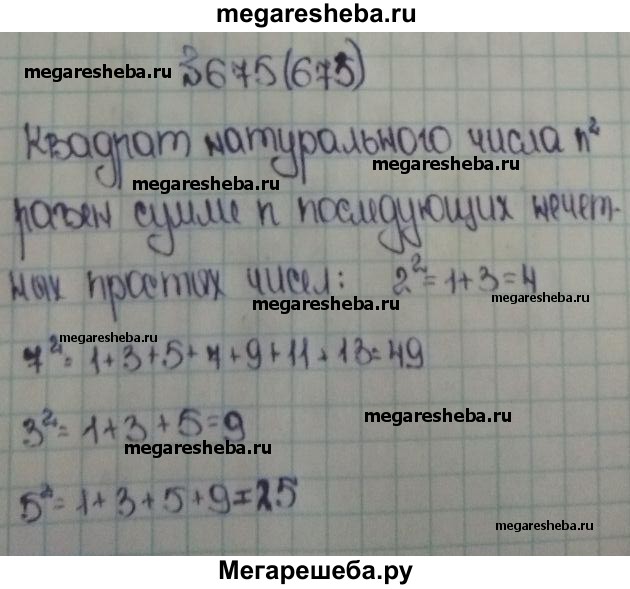 megaresheba.ru
megaresheba.ru №675(673) megaresheba.ru
Квадрат натурального числа n²
megaresheba.ru
megaresheba.ru
равен сумме n последующих нечет-
ных простых чисел: 2² = 1+3=4
megaresheba.ru megaresheba.ru
megaresheba.ru
7² = 1+3+5+7+9+11+13=49
3² = 1+3+5=9 megaresheba.ru
megaresheba.ru
5² = 1+3+5+9=25
megaresheba.ru
Мегарешеба.ру